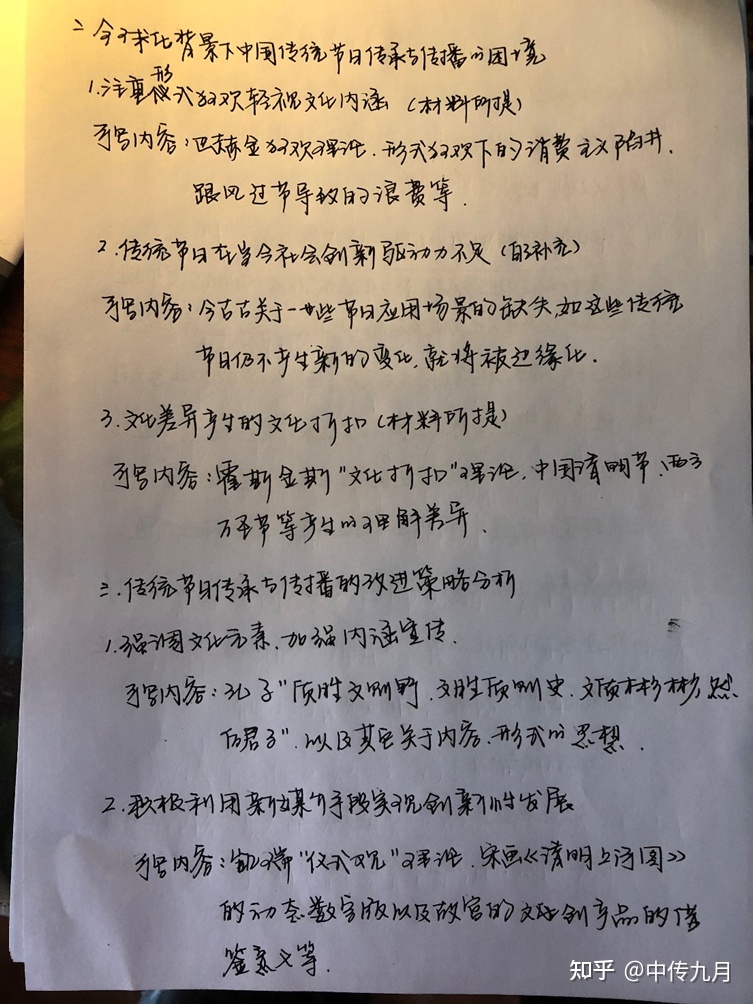 二.全球化背景下中国传统节日传承与传播的困境
1.注重形式狂欢轻视文化内涵(材料所提)
可写内容:巴赫金狂欢理论.形式狂欢下的消费主义陷井.
跟风过节导致的浪费等.
2.传统节日在当今社会创新驱动力不足(自补充)
可写内容:今古古关于一些节日应用场景的缺失,如这些传统
节日仍不产生新的变化,就将被边缘化.
3.文化差异产生的文化折扣(材料所提)
可写内容:霍斯金斯"文化折扣"理论,中国清明节、西方
万圣节等产生的理解差异.
三.传统节日传承与传播的改进策略分析
1.强调文化元素,加强内涵宣传.
可写内容:孔子"质胜文则野,文胜质则史,文质彬彬,然
后君子".以及其它关于内容、形式的思想.
2.积极利用新媒介手段实现创新性发展
可写内容:凯瑞"仪式观"理论.宋画《清明上河图》
的动态数字版以及故宫的文创产品的借
鉴意义等.
知乎 @中传九月